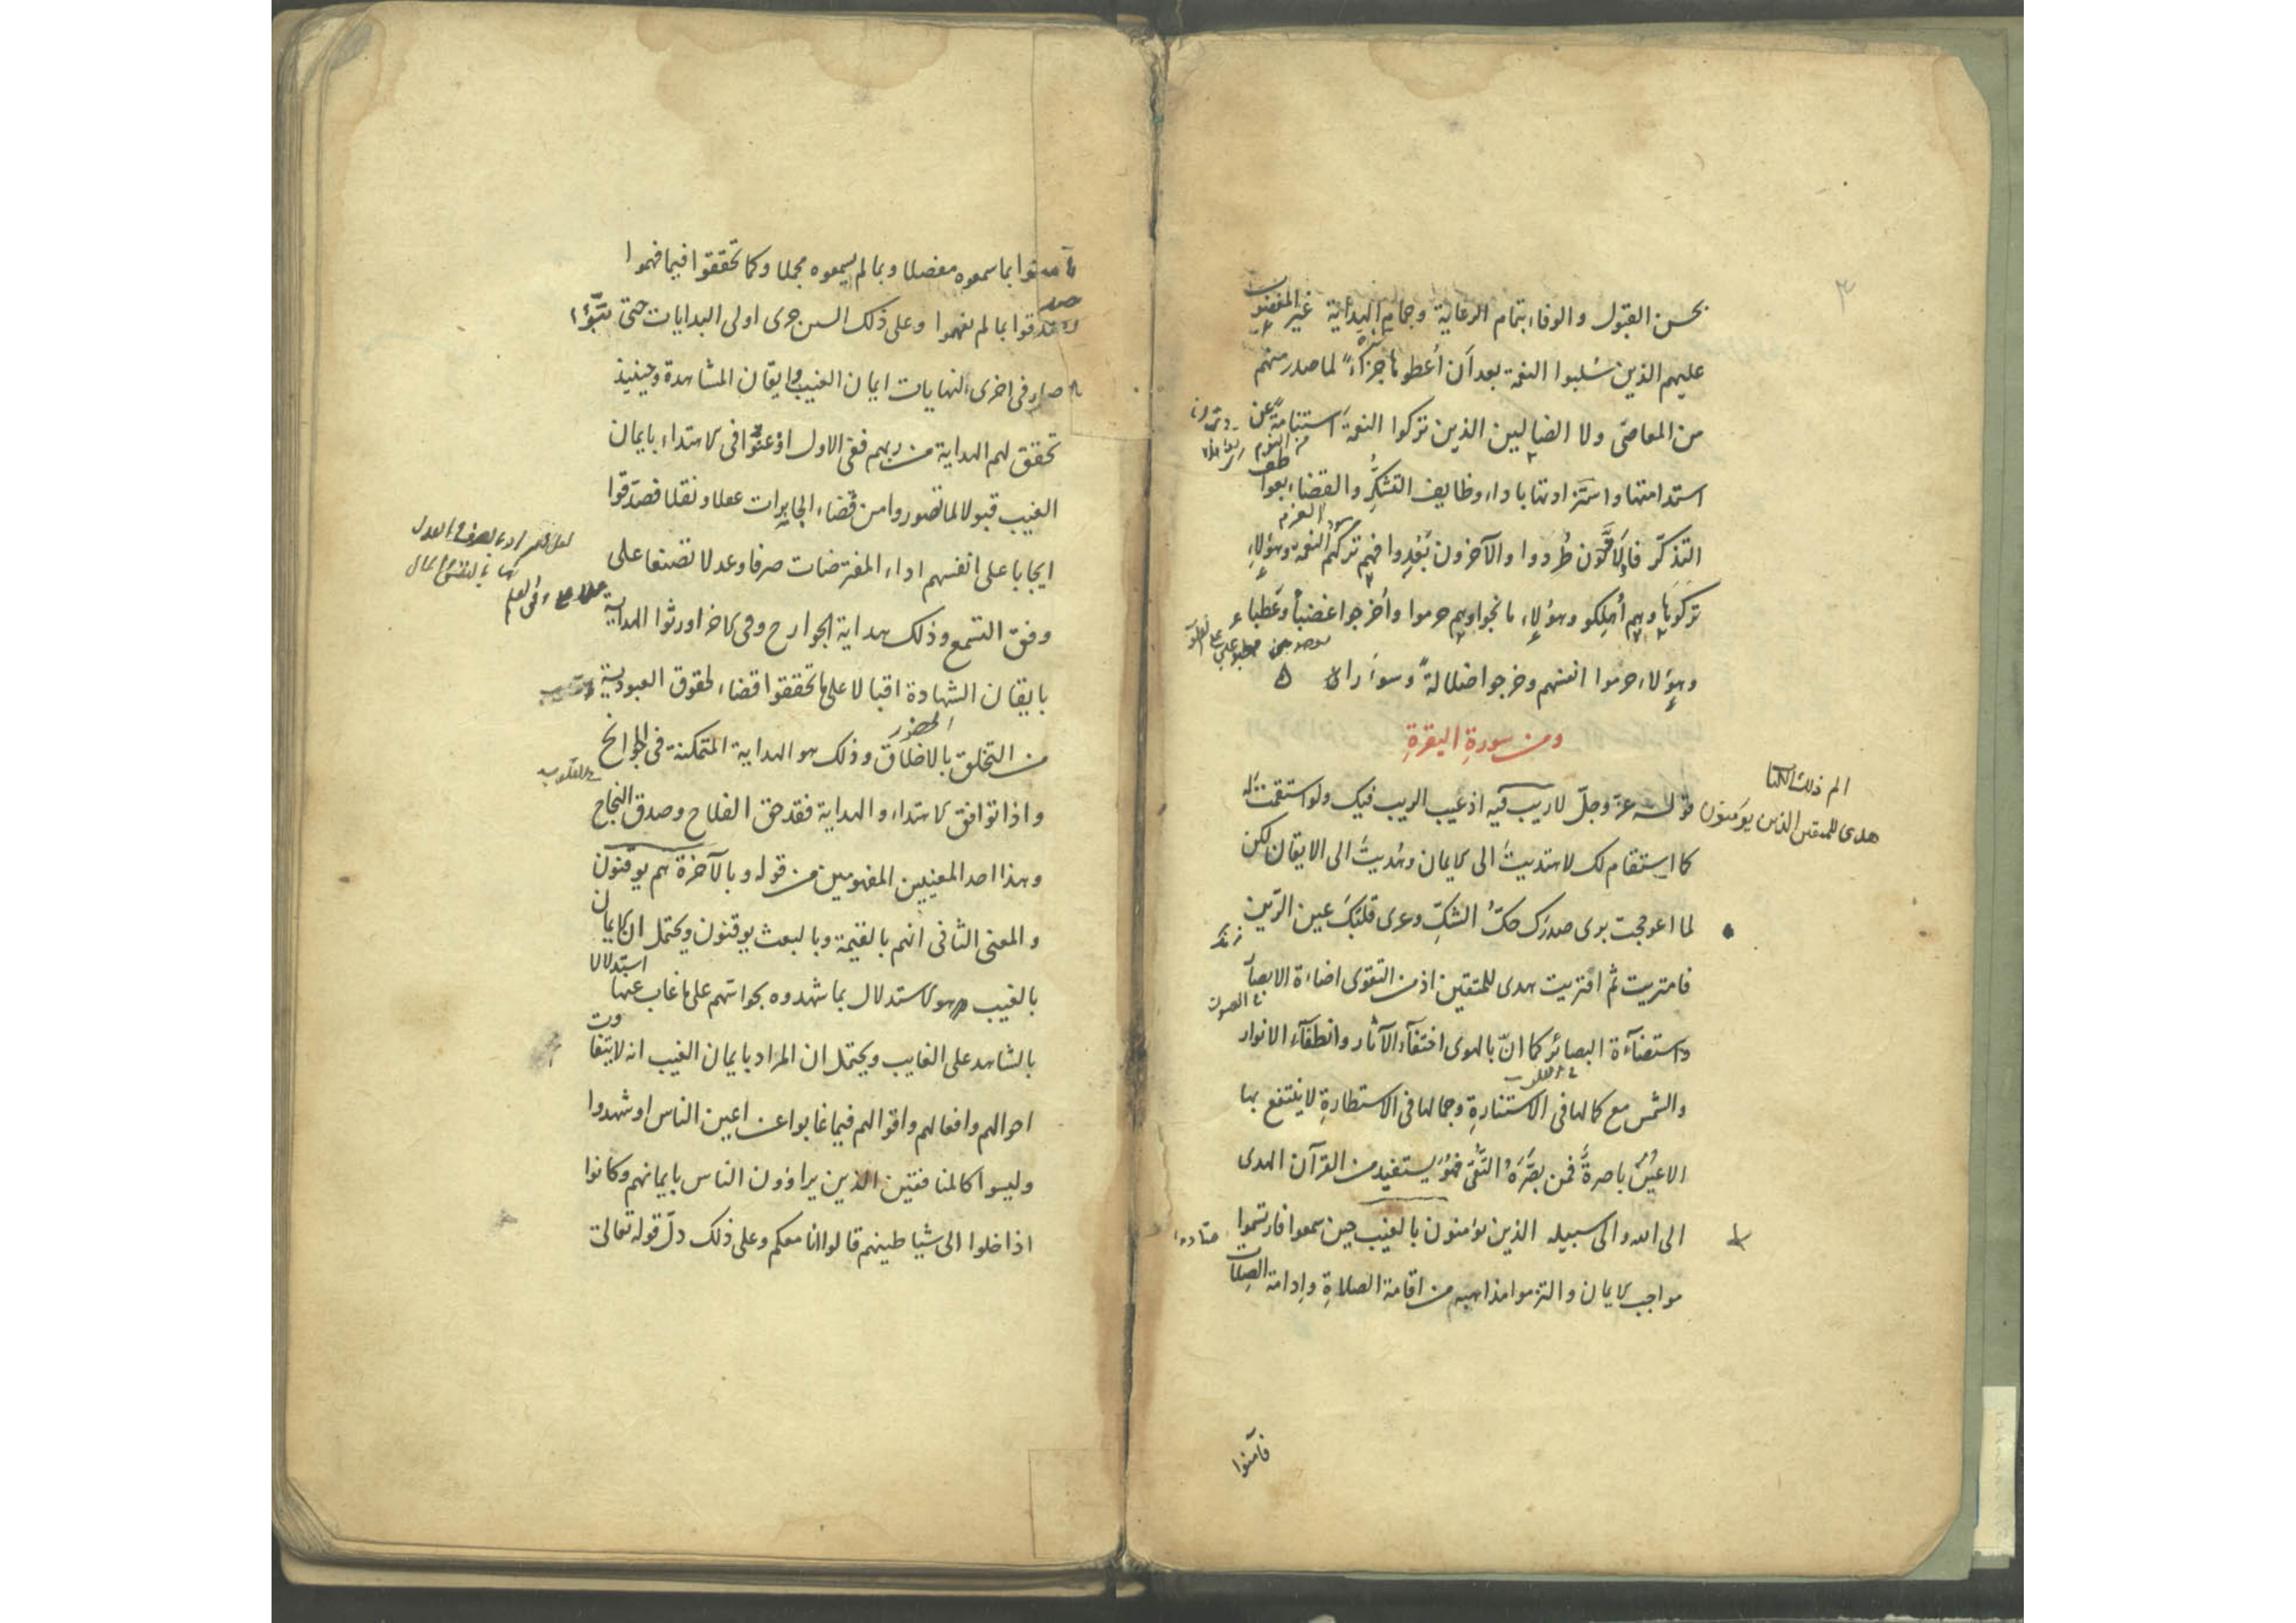 ٣
بحسن القبول والوفاء بتمام الرعاية وجمام البداية غير المغضوب
عليهم الذين سُلبوا النعمة بعد أن أعطوها جزاءً لما صدر منهم
من المعاصى ولا الضالين الذين تركوا النعمة استنامةً عن
استدامتها واستزادتها باداء وظايف التشكُّر والقضاء بعوا
التذكّر فالاوّلون طُردوا والآخرون بَعُدوا فهم تركهم النعمة وهؤلاء
تركوها وهم أُهلكو وهؤلاء ما نجوا وهم حرموا وأخرجوا غضباً وعَطبا
وهؤلاء حرموا انفسهم وخرجوا ضلالةً وسوءَ راى ه
ومن سورةِ البقرةِ
الم ذلك الكتا
هدى للمتقين الذين يؤمنون
قوله عز وجلّ لا ريب فيه اذ عيب الريب فيك ولو استقمت له
كما استقام لك لاهتديتَ الى الايمان وهُديتَ الى الايقان لكن
لما اعوججت بوى صدرَك حكّ الشكِّ وعرى قلبَكَ عين الرَّين
فامتريت ثم افتريت هدى للمتقين اذ من التقوى اضاءة الابصا
واستضآءة البصائر كما انّ بالهوى اختفآء الآثار وانطفآء الانوار
والشمس مع كمالها فى الاستنارةِ وجمالها فى الاستطارةِ لا ينتفع بها
الاعينٌ باصرةٌ فمن بصَّرَهُ التُّقى فهُوَ يستفيد من القرآن الهدى
الى الله والى سبيله الذين يؤمنون بالغيب حين سمعوا فارتسموا
مواجب الايمان والتزموا مذاهبه من اقامة الصلاةِ وإدامة الصِلات
فآمنوا
فآمنوا بما سمعوه مفصلا وبما لم يسمعوه مجملا وكما تحققوا فيما فهموا
صدقوا بما لم يفهموا وعلى ذلك السنن جرى اولى البدايات حتى تبوَّؤا
صار فى اخرى النهايات ايمان الغيب وايقان المشاهدة وحينيذ
تحقق لهم الهداية من ربهم ففى الاول اذعنوا فى الاهتداء بايمان
الغيب قبولا لما تصوروا من قضاء الجايرات عقلا ونقلا فصدّقوا
ايجابا على انفسهم اداء المفترضات صرفا وعدلا تصنعا على
وفق التسمع وذلك هداية الجوارح وفى الاخر اورثوا الهداية
بايقان الشهادة اقبالا على ما تحققوا قضاء لحقوق العبودية
الحضور
من التخلق بالاخلاق وذلك هو الهداية المتمكنة فى الجوانح
واذا توافق الاهتداء والهداية فقد حق الفلاح وصدق النجاح
وهذا احد المعنيين المفهومين من قوله وبالآخرة هم يوقنون
والمعنى الثانى انهم بالغيمة وبالبعث يوقنون ويحتمل ان الايمان
بالغيب هو الاستدلال بما شهدوه بحواسهم على ما غاب عنها
استدلالا
بالشاهد على الغايب ويحتمل ان المراد بايمان الغيب انه لا يتفاوت
احوالهم وافعالهم واقوالهم فيما غابوا عن اعين الناس او شهدوا
وليسوا كالمنافقين الذين يراؤون الناس بايمانهم وكانوا
اذا خلوا الى شياطينهم قالوا انا معكم وعلى ذلك دلّ قوله تعالى